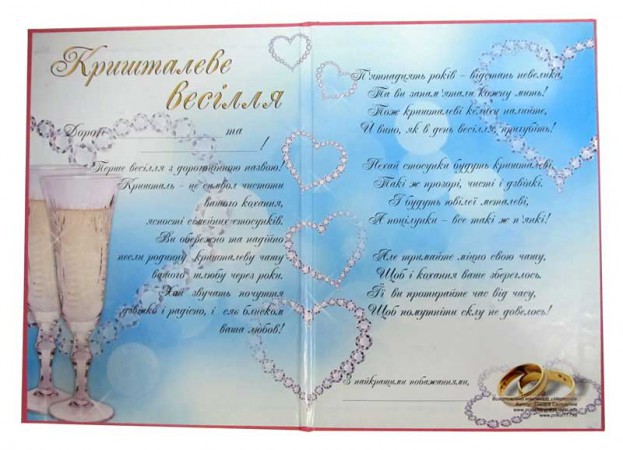 Кришталеве
весілля
Дорогі та
!
Перше весілля з дорогоцінною назвою!
Кришталь – це символ чистоти
вашого кохання,
ясності сімейних стосунків.
Ви обережно та надійно
несли родинну кришталеву чашу
вашого шлюбу через роки.
Хай звучать почуття
дзвінко і радісно, і сяє блиском
ваша любов!
П'ятнадцять років – відстань невелика,
Та ви запам'ятали кожну мить!
Тож кришталеві келихи налийте,
И вино, як в день весілля, пригубіть!
Нехай стосунки будуть кришталеві,
Такі ж прозорі, чисті і дзвінкі.
І будуть ювілеї металеві,
А поцілунки – все такі ж п'янкі!
Але тримайте міцно свою чашу,
Щоб і кохання ваше збереглось.
Її ви протирайте час від часу,
Щоб помутніти склу не довелось!
З найкращими побажаннями,